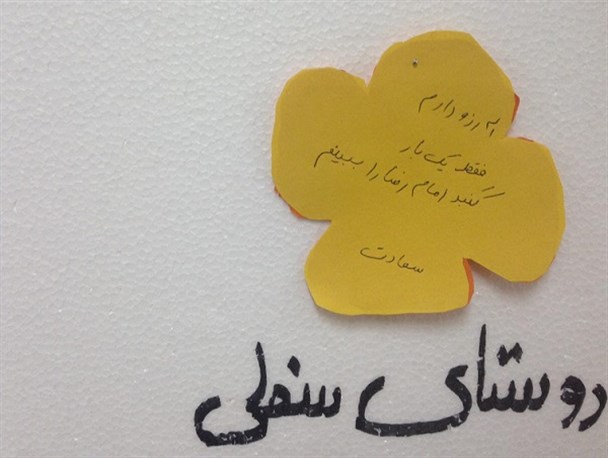 آرزو دارم
فقط یک بار
گنبد امام رضا را ببینم
سعادت
روستای سفلی